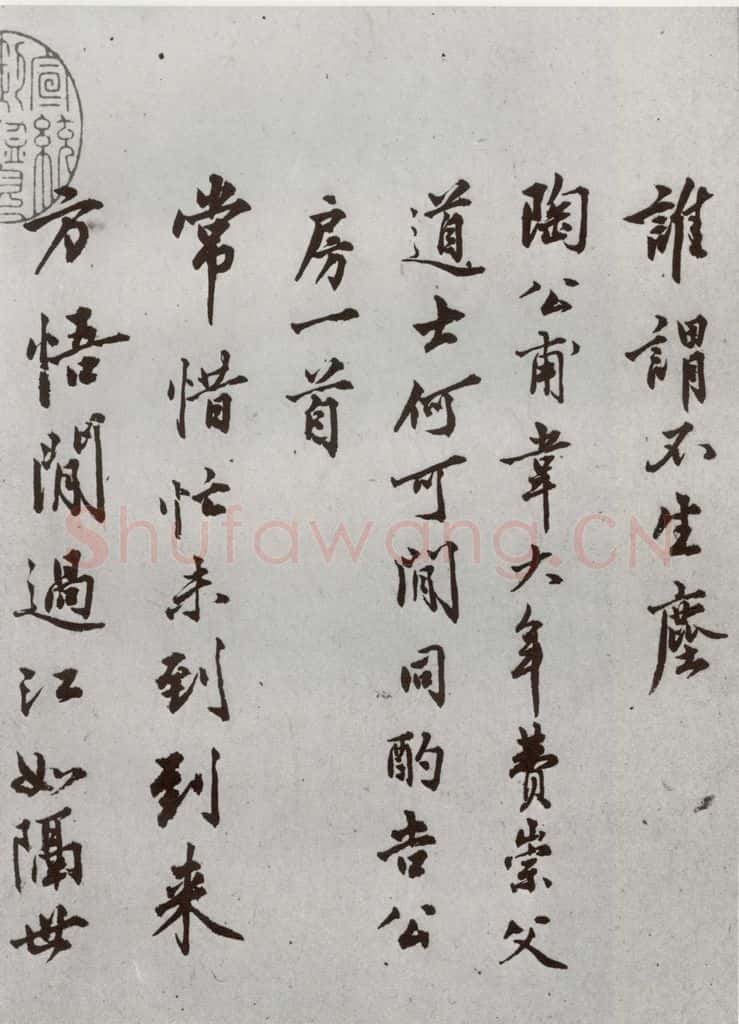 誰謂不生塵
陶公甫韋大年費崇父
道士何可閒同酌吉公
房一首
常惜忙未到到来
方悟閒過江如隔世
Shufawang.CN